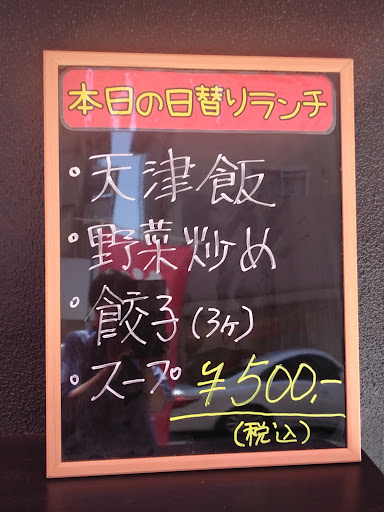 本日の日替りランチ
・天津飯
・野菜炒め
・餃子(3ヶ)
・スープ ¥500,-
(税込)